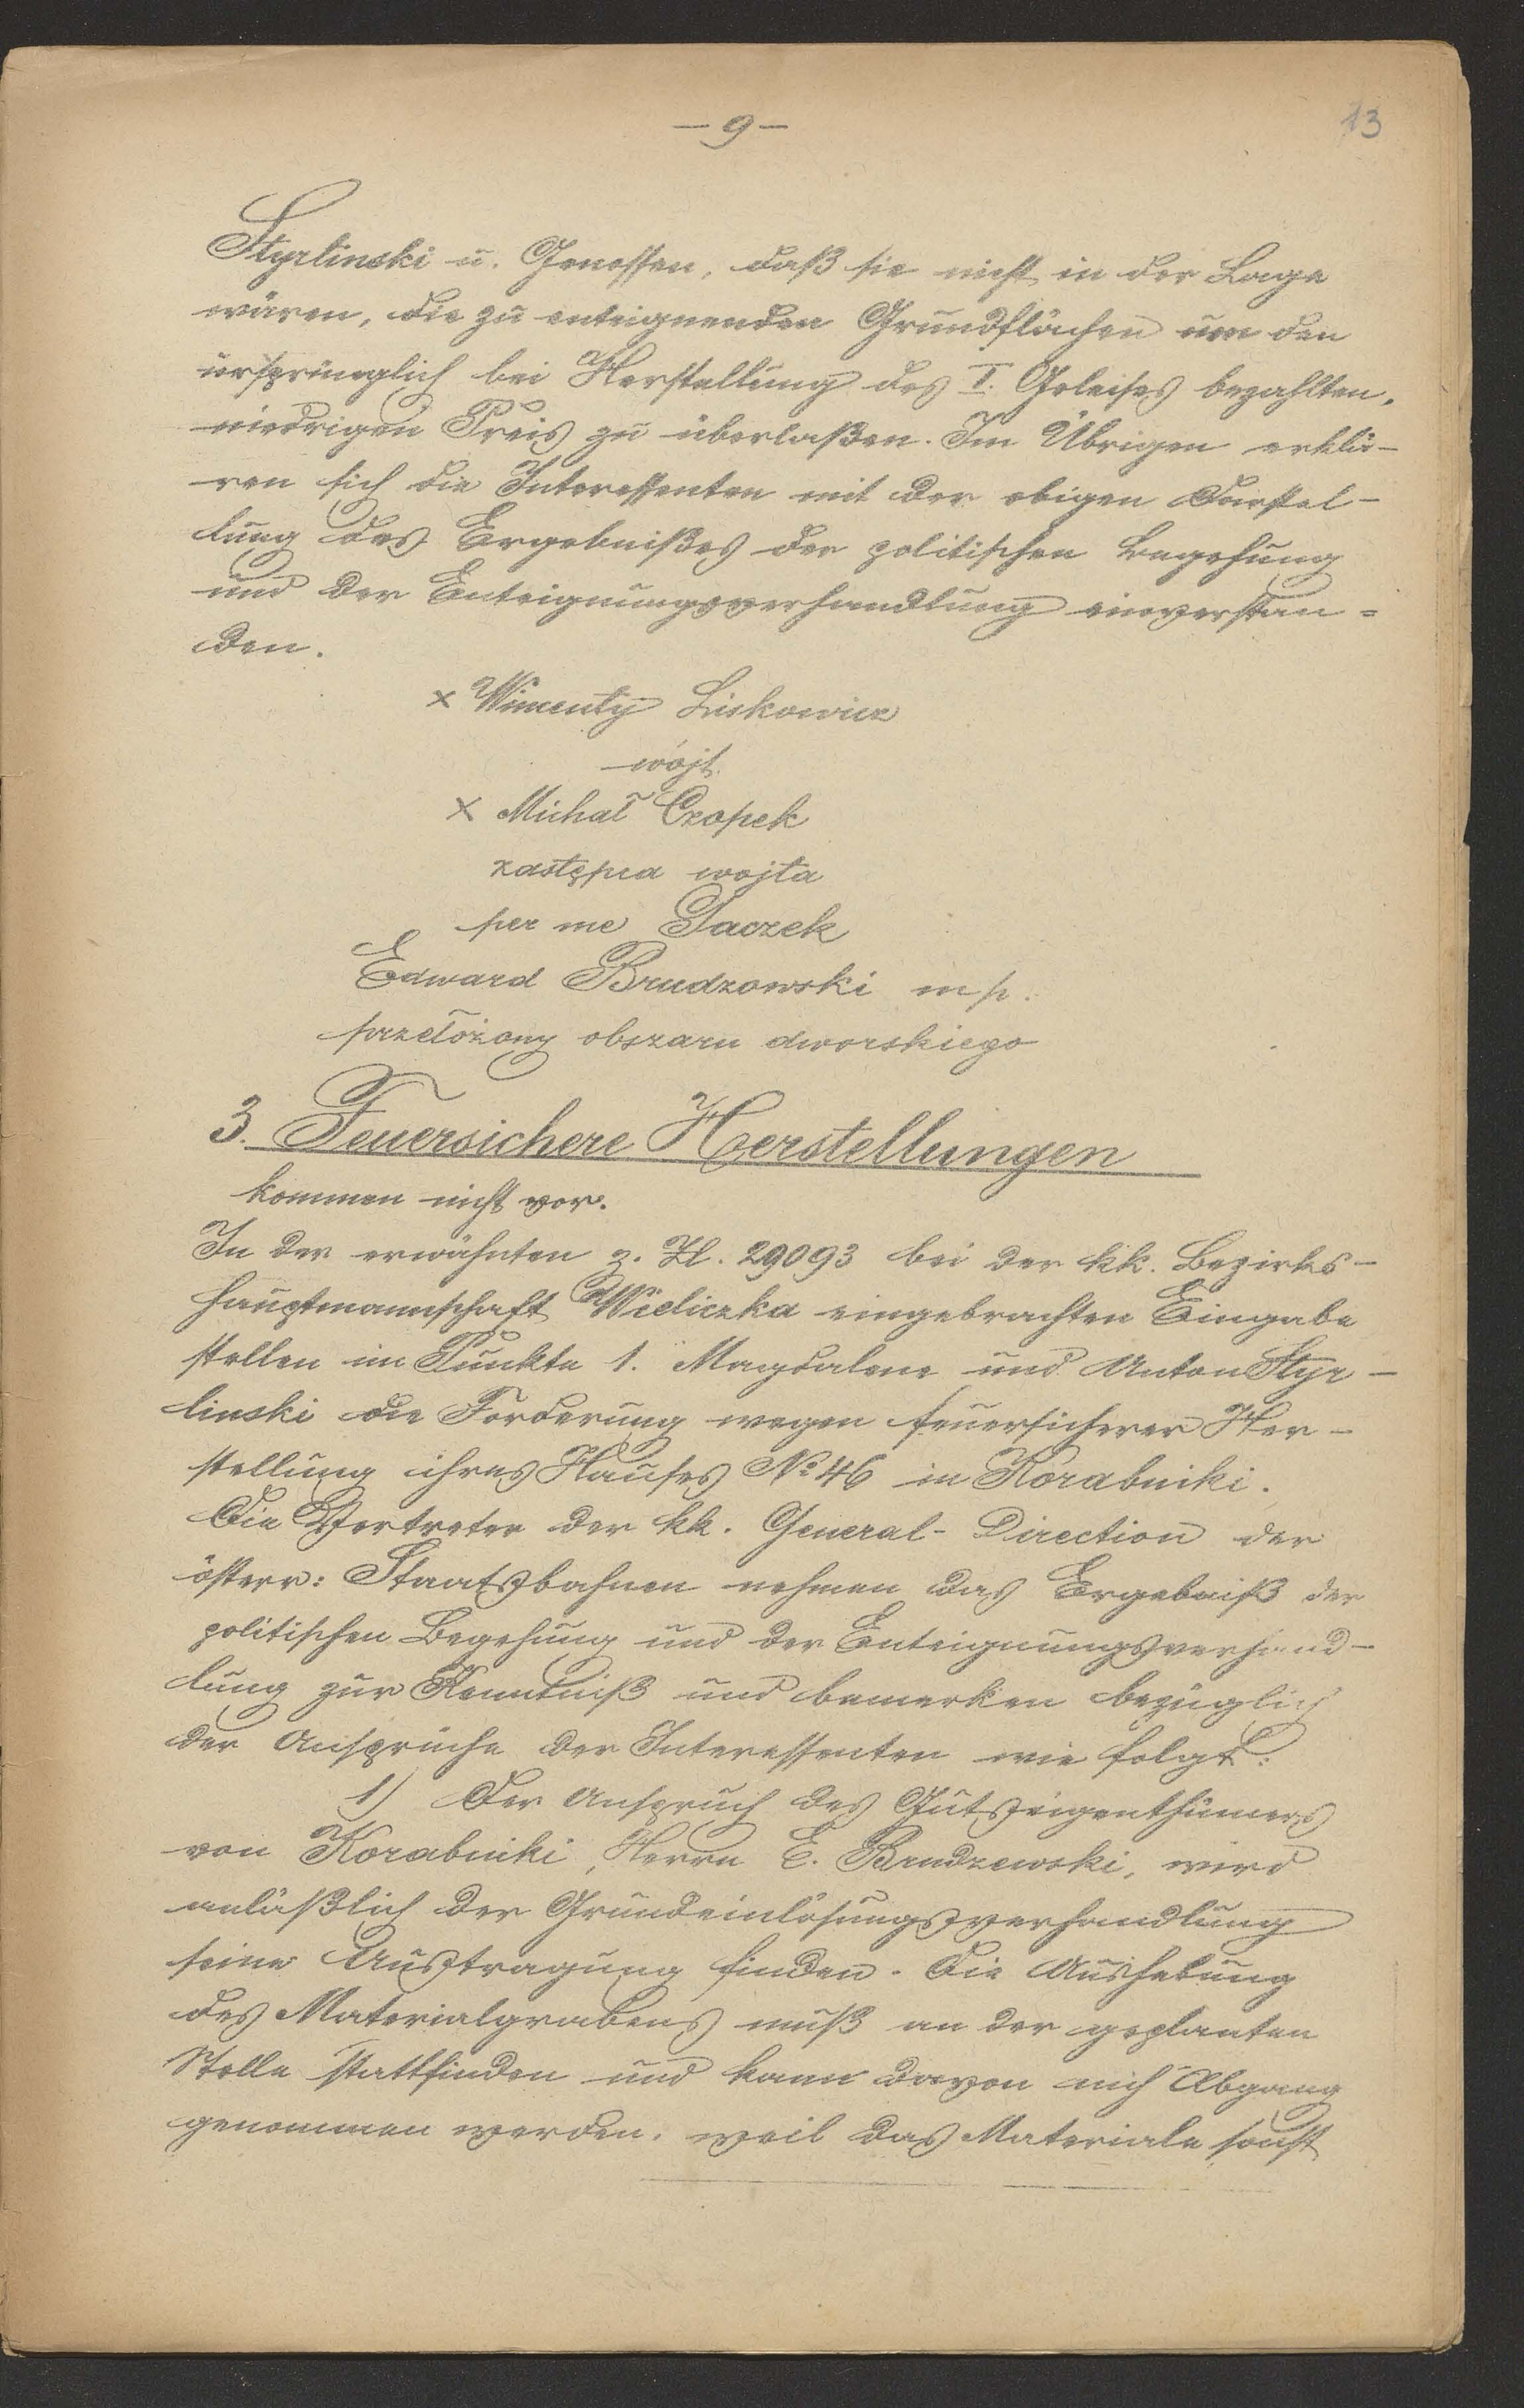 - 9 -
13
Styrlinski u. Genossen, daß sie nicht in der Lage
wären, die zu enteignenden Grundflächen um den
ursprünglich bei Herstellung des I. Geleises bezahlten,
niedrigen Preis zu überlaßen. Im Übrigen erklä-
ren sich die Interessenten mit der obigen Darstel-
lung des Ergebnißes der politischen Begehung
und der Enteignungsverhandlung einverstan-
den.
x Wincenty Liskowicz
wójt.
x Michał Czopek
zastępca wojta
per me Taczek
Edward Brudzowski mp.
przełożony obszaru dworskiego
3. Feuersichere Herstellungen
kommen nicht vor.
In der erwähnten z. Zl. 29093 bei der kk. Bezirks-
hauptmannschaft Wieliczka eingebrachten Eingabe
stellen im Punkte 1. Magdalena und Anton Styr-
linski die Forderung wegen feuersicherer Her-
stellung ihres Hauses No 46 in Korabniki.
Die Vertreter der kk. General-Direction der
österr: Staatsbahnen nehmen das Ergebniß der
politischen Begehung und der Enteignungsverhand-
lung zur Kenntniß und bemerken bezüglich
der Ansprüche der Interessenten wie folgt:
1) Der Anspruch des Gutseigenthümers
von Korabniki, Herrn E. Brudzewski, wird
anläßlich der Grundeinlösungsverhandlung
seine Austragung finden. Die Aushebung
des Materialgrabens muß an der geplanten
Stelle stattfinden und kann davon nich Abgang
genommen werden, weil das Materiale sonst